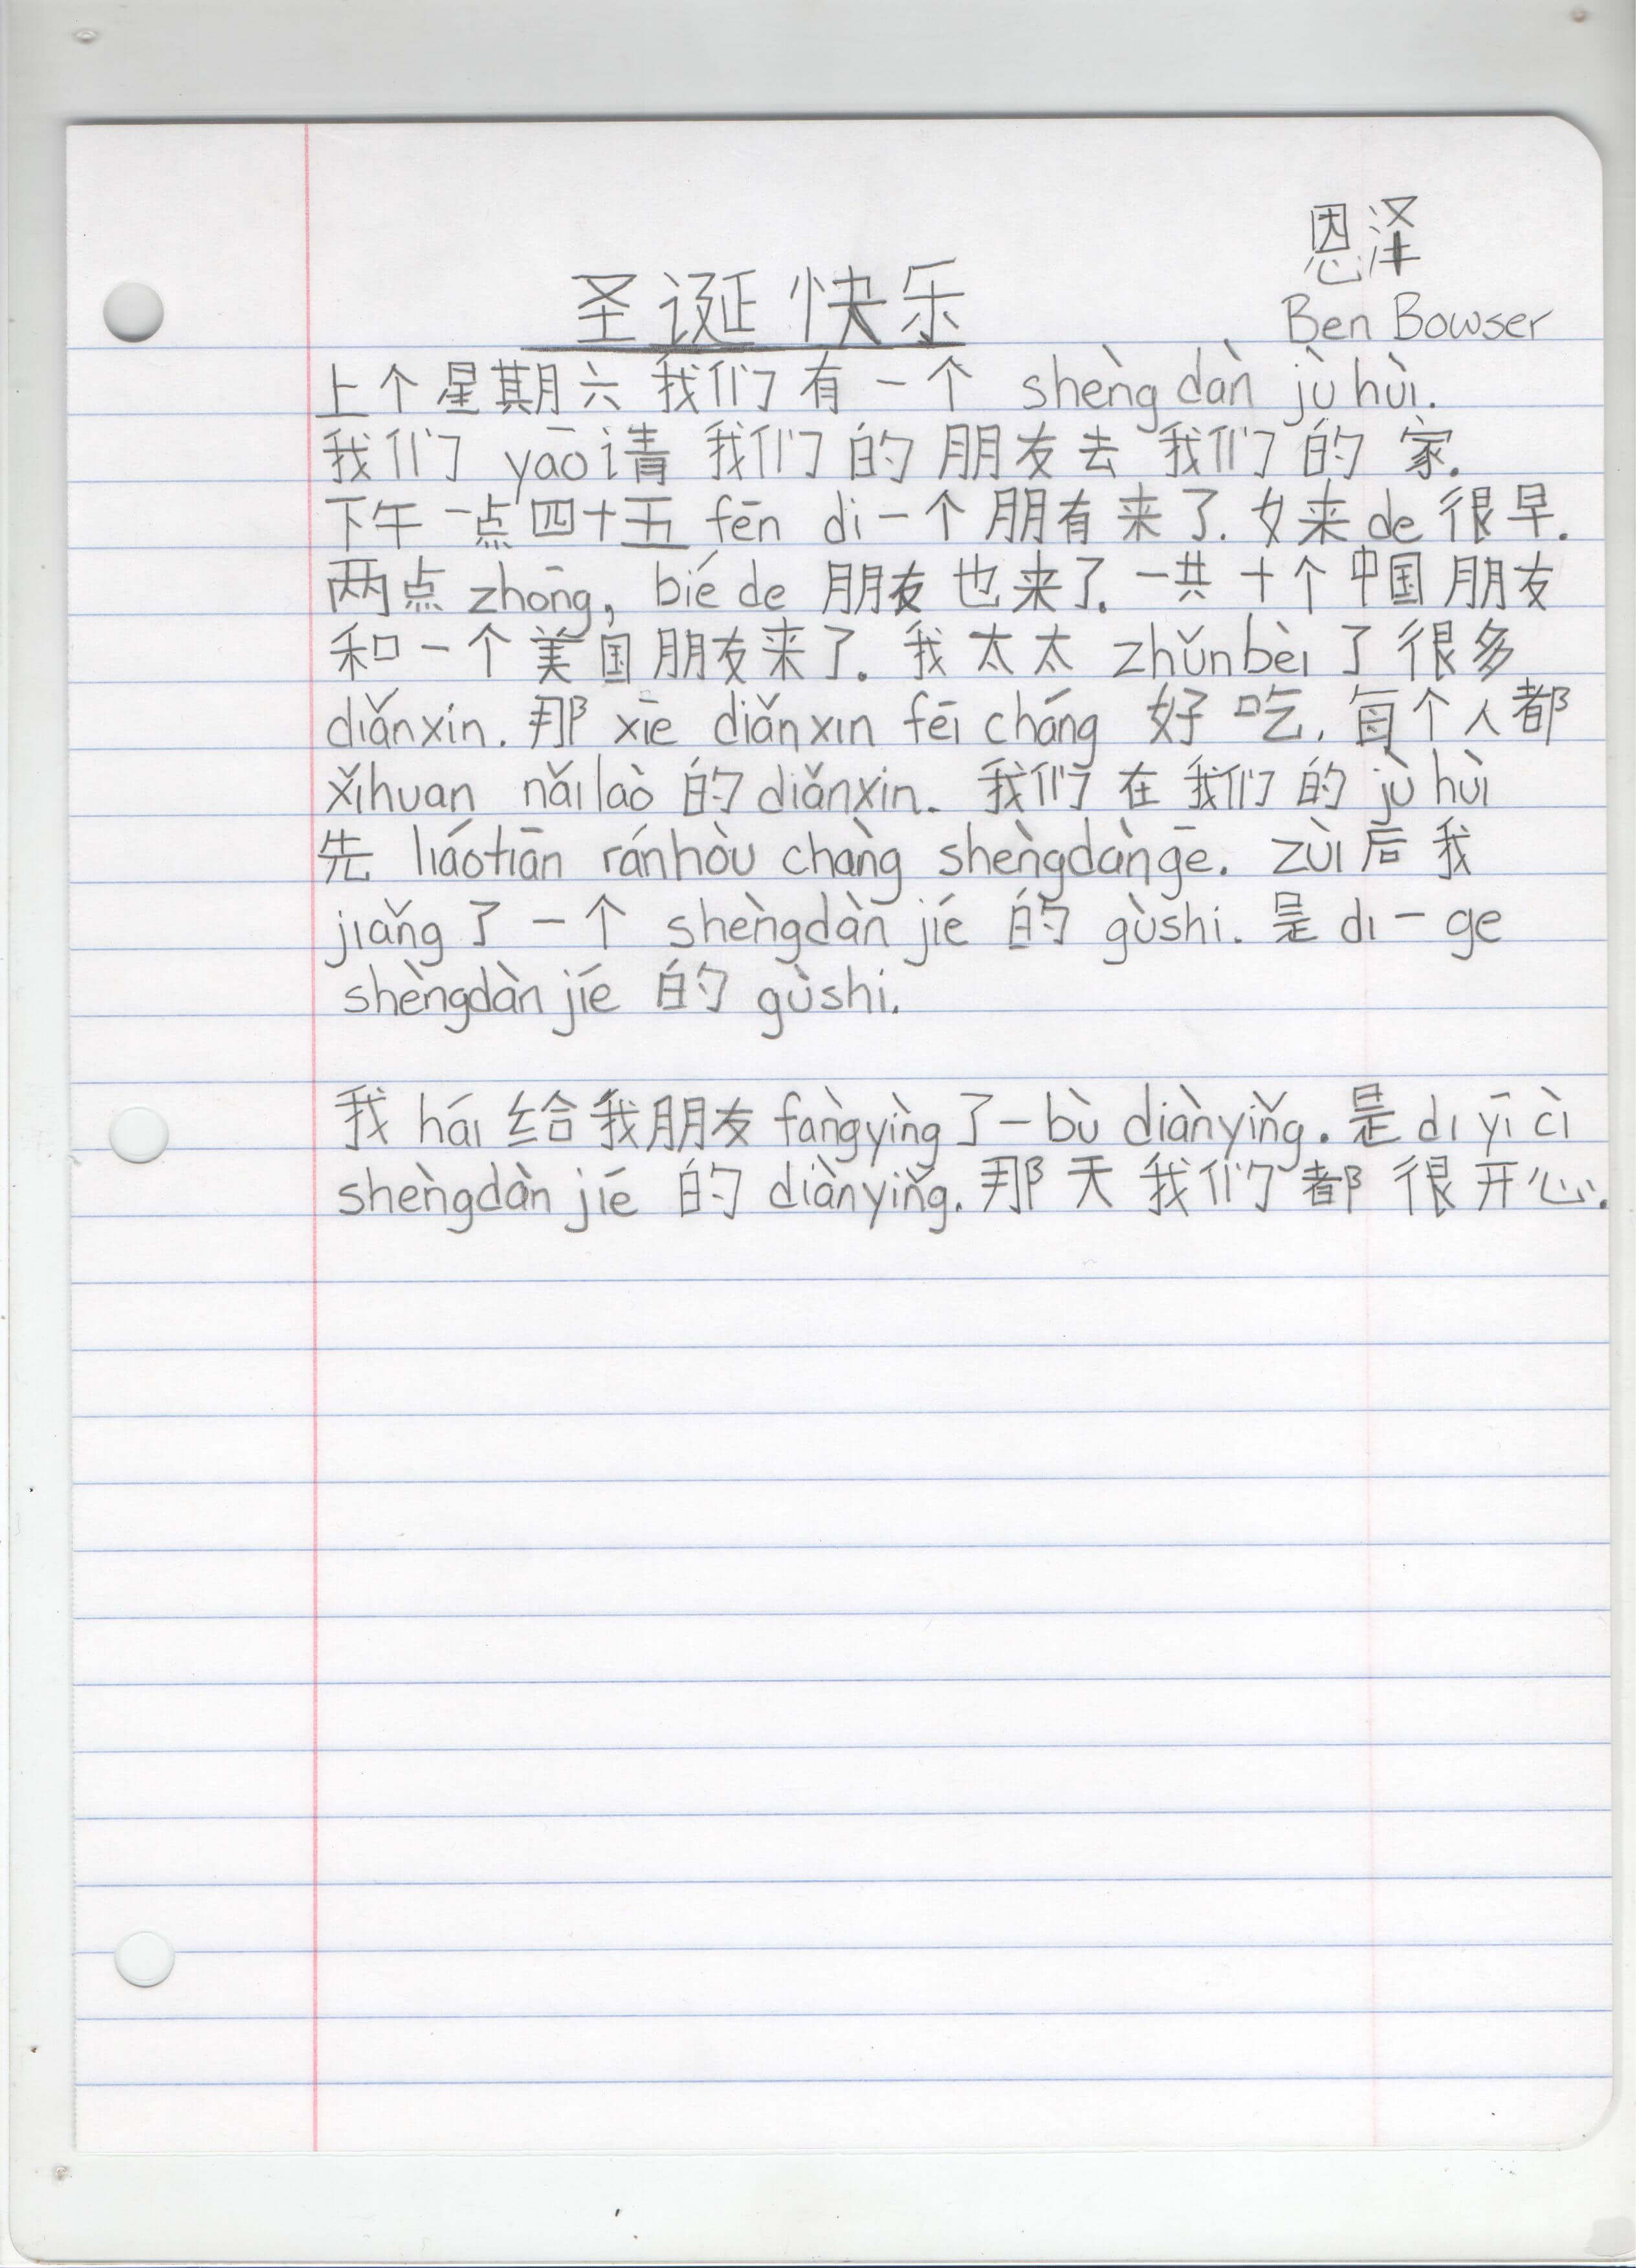 恩泽
圣诞快乐
Ben Bowser
上个星期六我们有一个 shèngdàn jùhùi.
我们 yāo请 我们的朋友去我们的家.
下午一点四十五 fēn di一个朋有来了. 女来de很早.
两点zhōng, biéde 朋友也来了. 一共十个中国朋友
和一个美国朋友来了. 我太太 zhǔnbèi 了很多
diǎnxin. 那 xiē diǎnxin fēicháng 好吃. 每个人都
xǐhuan nǎilaò 的 diǎnxin. 我们在我们的 jùhùi
先 liáotiān ránhòu chàng shèngdàngē. zùi后我
jiǎng了一个 shèngdànjié 的 gùshi. 是di一ge
shèngdànjié 的 gùshi.
我 hái 给我朋友 fàngyìng了一bù diànyǐng. 是di yī cì
shèngdànjié 的 diànyǐng. 那天我们都很开心.